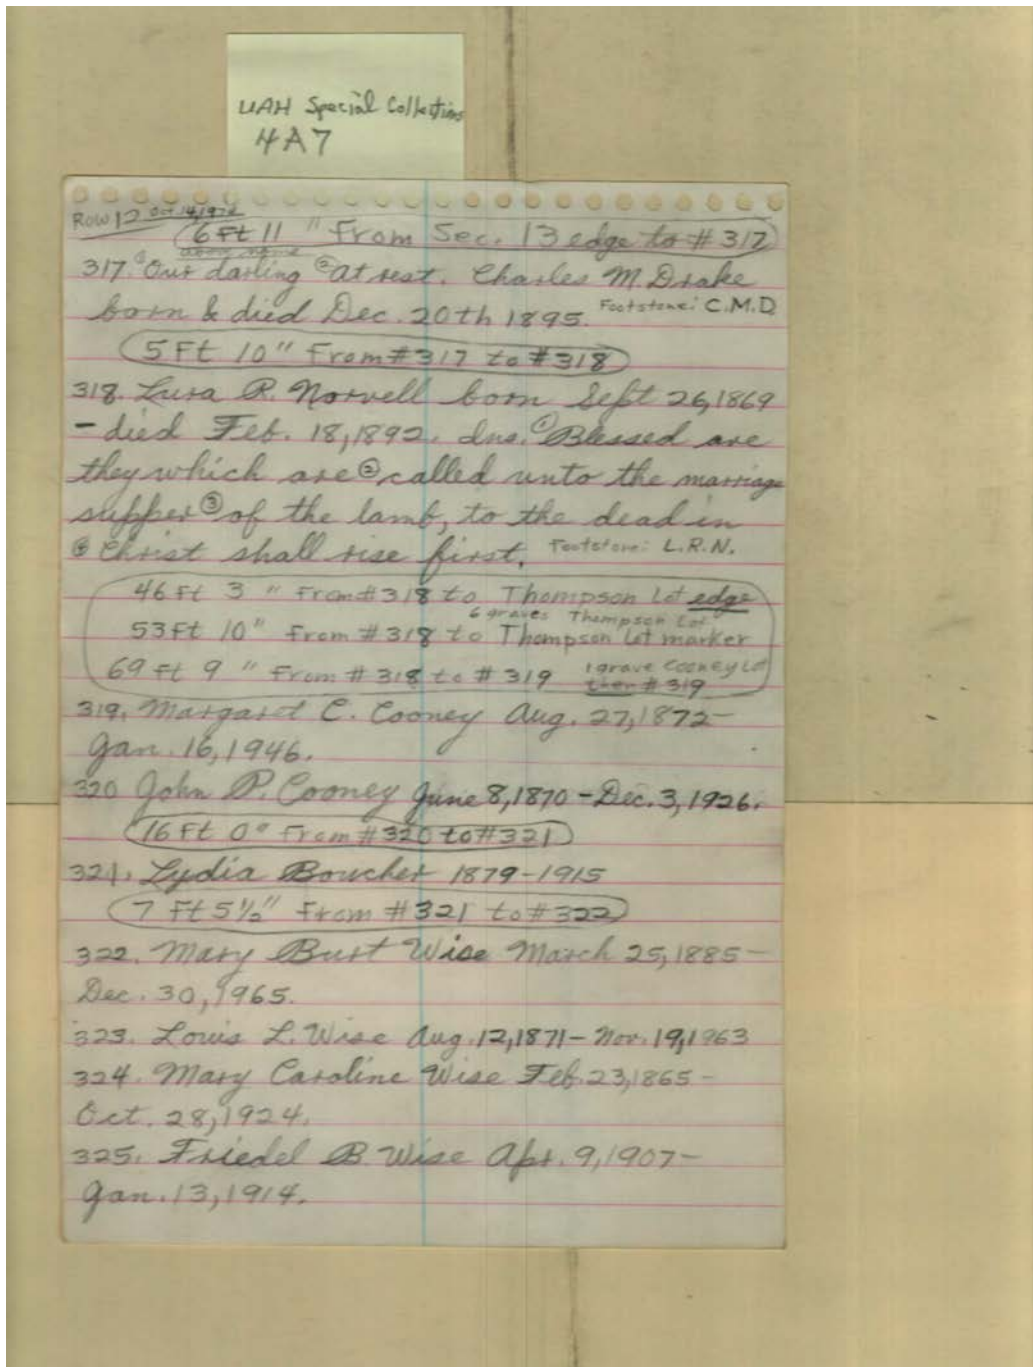 UAH Special Collections
4A7
Row 12 Oct. 14, 1972
6 Ft 11 " From Sec. 13 edge to # 317
above name
317. ① Our darling ② At rest. Charles M. Drake
born & died Dec. 20th 1895. Footstone: C.M.D
5 Ft 10" From #317 to #318
318. Lura R. Norvell born Sept 26, 1869
- died Feb. 18, 1892. Ins. ① Blessed are
they which are ② called unto the marriage
supper ③ of the lamb, to the dead in
④ Christ shall rise first. Footstone: L.R.N.
46 Ft 3 " From #318 to Thompson Lot edge
6 graves Thompson Lot
53 Ft 10" From #318 to Thompson Lot marker
69 Ft 9 " From # 318 to # 319 1 grave Cooney Lot
then # 319
319. Margaret C. Cooney Aug. 27, 1872-
Jan. 16, 1946.
320 John P. Cooney June 8, 1870 - Dec. 3, 1926.
16 Ft 0" From #320 to #321
321. Lydia Boucher 1879-1915
7 Ft 5½" From #321 to #322
322. Mary Burt Wise March 25, 1885-
Dec. 30, 1965.
323. Louis L. Wise Aug. 12, 1871- Nov. 19, 1963
324. Mary Caroline Wise Feb. 23, 1865-
Oct. 28, 1924.
325. Friedel B. Wise Apr. 9, 1907-
Jan. 13, 1914.